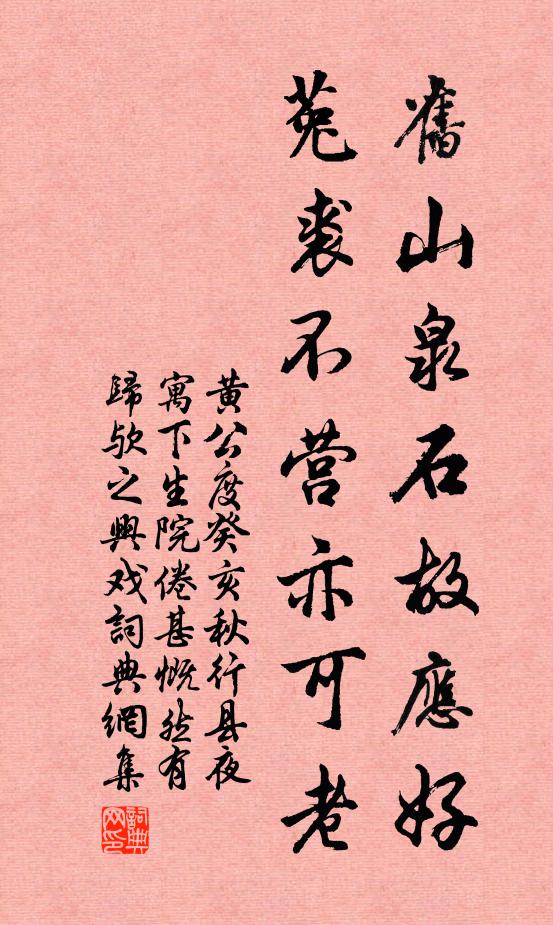 舊山泉石故應好
菟裘不营亦可老
黄公度癸亥秋行县夜
寓下生院倦甚慨然有
歸欤之興戏詞典網集
詞典
网印